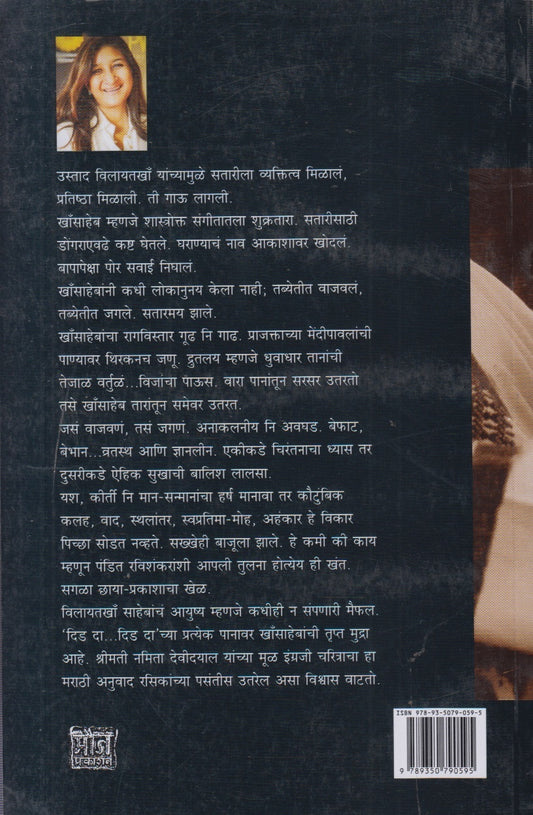 उस्ताद विलायतखाँ यांच्यामुळे सतारीला व्यक्तित्व मिळालं,
प्रतिष्ठा मिळाली. ती गाऊ लागली.
खाँसाहेब म्हणजे शास्त्रोक्त संगीतातला शुक्रतारा. सतारीसाठी
डोंगराएवढे कष्ट घेतले. घराण्याचं नाव आकाशावर खोदलं.
बापापेक्षा पोर सवाई निघालं.
खाँसाहेबांनी कधी लोकानुनय केला नाही; तब्येतीत वाजवलं,
तब्येतीत जगले. सतारमय झाले.
खाँसाहेबांचा रागविस्तार गूढ नि गाढ. प्राजक्ताच्या मेंदीपावलांची
पाण्यावर थिरकनच जणू. द्रुतलय म्हणजे धुवाधार तानांची
तेजाळ वर्तुळं...विजांचा पाऊस. वारा पानांतून सरसर उतरतो
तसे खाँसाहेब तारांतून समेवर उतरत.
जसं वाजवणं, तसं जगणं. अनाकलनीय नि अवघड. बेफाट,
बेभान...व्रतस्थ आणि ज्ञानलीन. एकीकडे चिरंतनाचा ध्यास तर
दुसरीकडे ऐहिक सुखाची बालिश लालसा.
यश, कीर्ती नि मान-सन्मानांचा हर्ष मानावा तर कौटुंबिक
कलह, वाद, स्थलांतर, स्वप्रतिमा-मोह, अहंकार हे विकार
पिच्छा सोडत नव्हते. सख्खेही बाजूला झाले. हे कमी की काय
म्हणून पंडित रविशंकरांशी आपली तुलना होत्येय ही खंत.
सगळा छाया-प्रकाशाचा खेळ.
विलायतखाँ साहेबांचं आयुष्य म्हणजे कधीही न संपणारी मैफल.
‘दिड दा...दिड दा’च्या प्रत्येक पानावर खाँसाहेबांची तृप्त मुद्रा
आहे. श्रीमती नमिता देवीदयाल यांच्या मूळ इंग्रजी चरित्राचा हा
मराठी अनुवाद रसिकांच्या पसंतीस उतरेल असा विश्वास वाटतो.
मौज
प्रकाशन
ISBN 978-93-5079-059-5
9 789350 790595